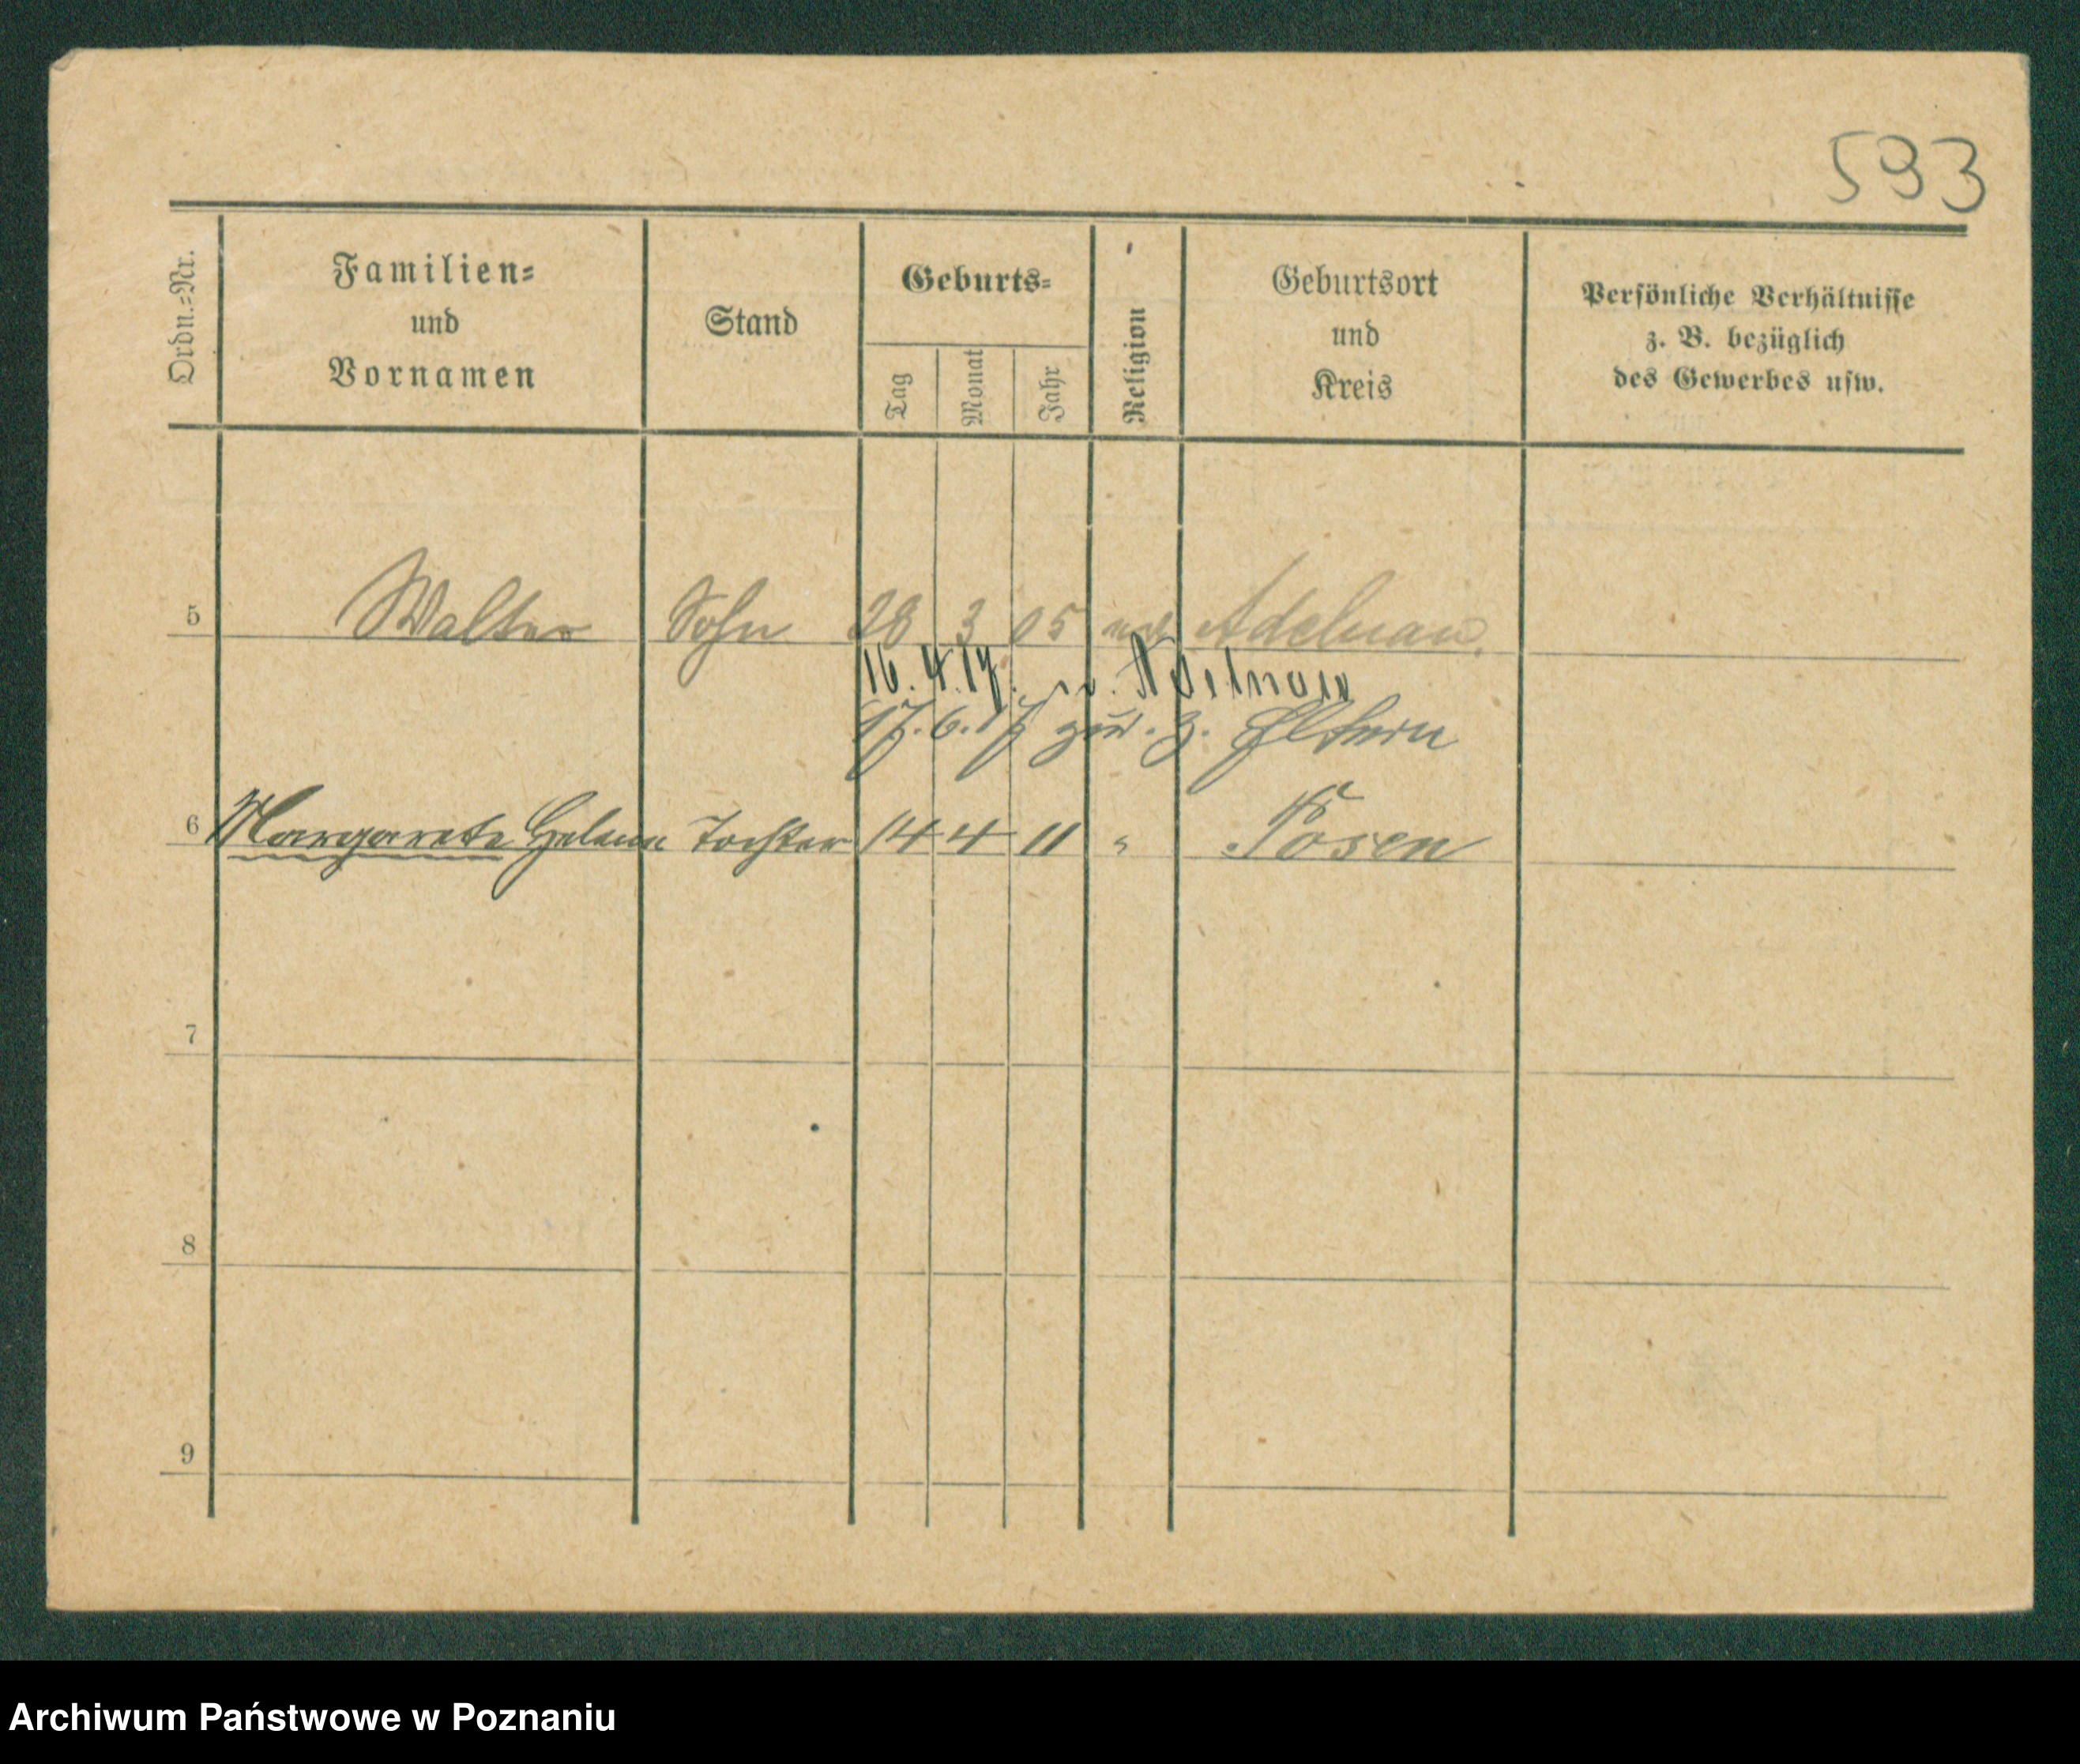 593
Ordn.=Nr.
Familien=
und
Vornamen
Stand
Geburts=
Tag
Monat
Jahr
Religion
Geburtsort
und
Kreis
Persönliche Verhältnisse
z. B. bezüglich
des Gewerbes usw.
5 Walter Sohn 28 3 05 Adelnau.
16.4.17. v. Adelnau
17.6.17 zur. z. Eltern
6 Margarete Helene Tochter 14 4 11 " Posen
7
8
9
Archiwum Państwowe w Poznaniu